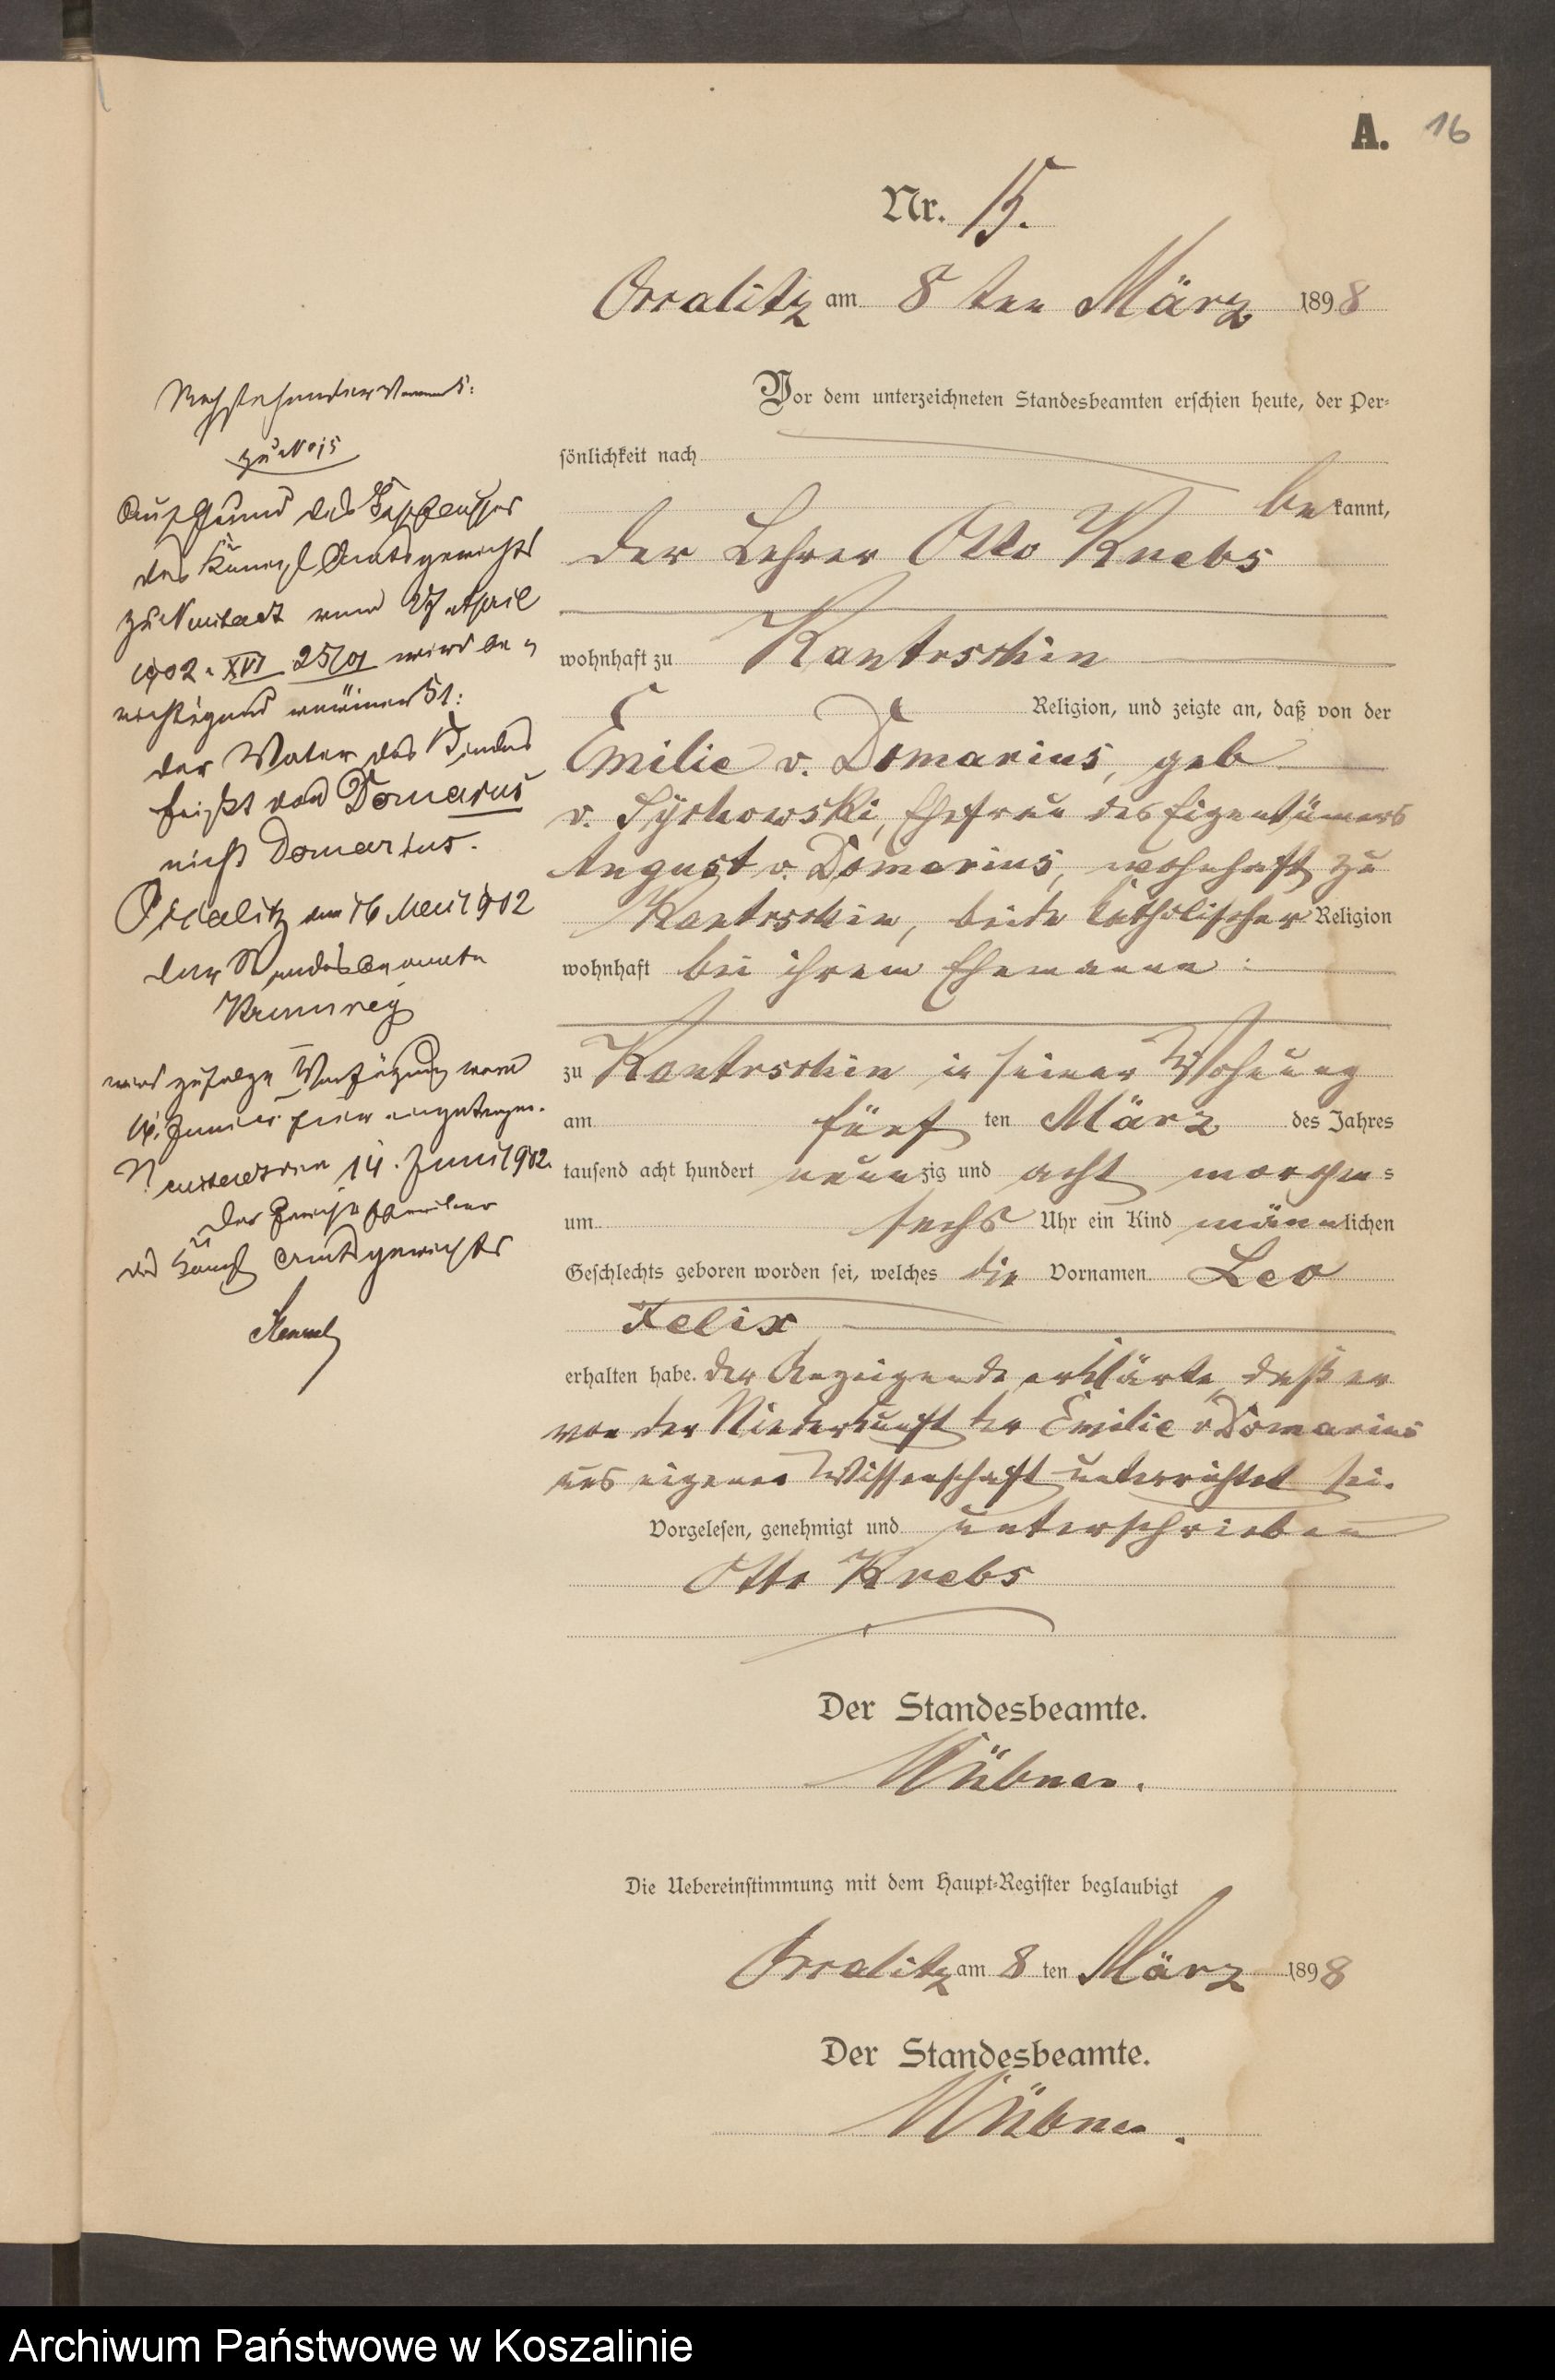 A. 16
Nr. 15.
am 8 ten März 1898
Vor dem unterzeichneten Standesbeamten erschien heute, der Per-
sönlichkeit nach
be kannt,
der Lehrer Otto Krebs
wohnhaft zu Kantrschin
Religion, und zeigte an, daß von der
Emilie v. Domarius, geb
v. Ehefrau des Eigentümers
August v. Domarius, wohnhaft zu
Kantrschin, beide katholischer Religion
wohnhaft bei ihrem Ehemanne
zu Kantrschin in seiner Wohnung
am fünf ten März des Jahres
tausend acht hundert neunzig und acht morgens
um sechs Uhr ein Kind männlichen
Geschlechts geboren worden sei, welches die Vornamen Leo
Felix
erhalten habe. Der Anzeigende erklärte, daß er
von der Niederkunft der Emilie v Domarius
aus eigener Wissenschaft unterrichtet sei.
Vorgelesen, genehmigt und unterschrieben
Otto Krebs
Der Standesbeamte.
Die Uebereinstimmung mit dem Haupt-Register beglaubigt
am 8 ten März 1898
Der Standesbeamte.
zu No 15
Auf Grund des
des Königl Amtsgerichts
zu Neustadt vom 27 April
1902 XVI wird be-
richtigend vermerkt:
der Vater des Kindes
heißt von Domarus
nicht Domarius.
am 16 Mai 1902
der Standesbeamte
wird zufolge Verfügung vom
hier eingetragen.
14. Juni 1902.
Der Gerichtsschreiber
des Königl Amtsgerichts
Archiwum Państwowe w Koszalinie